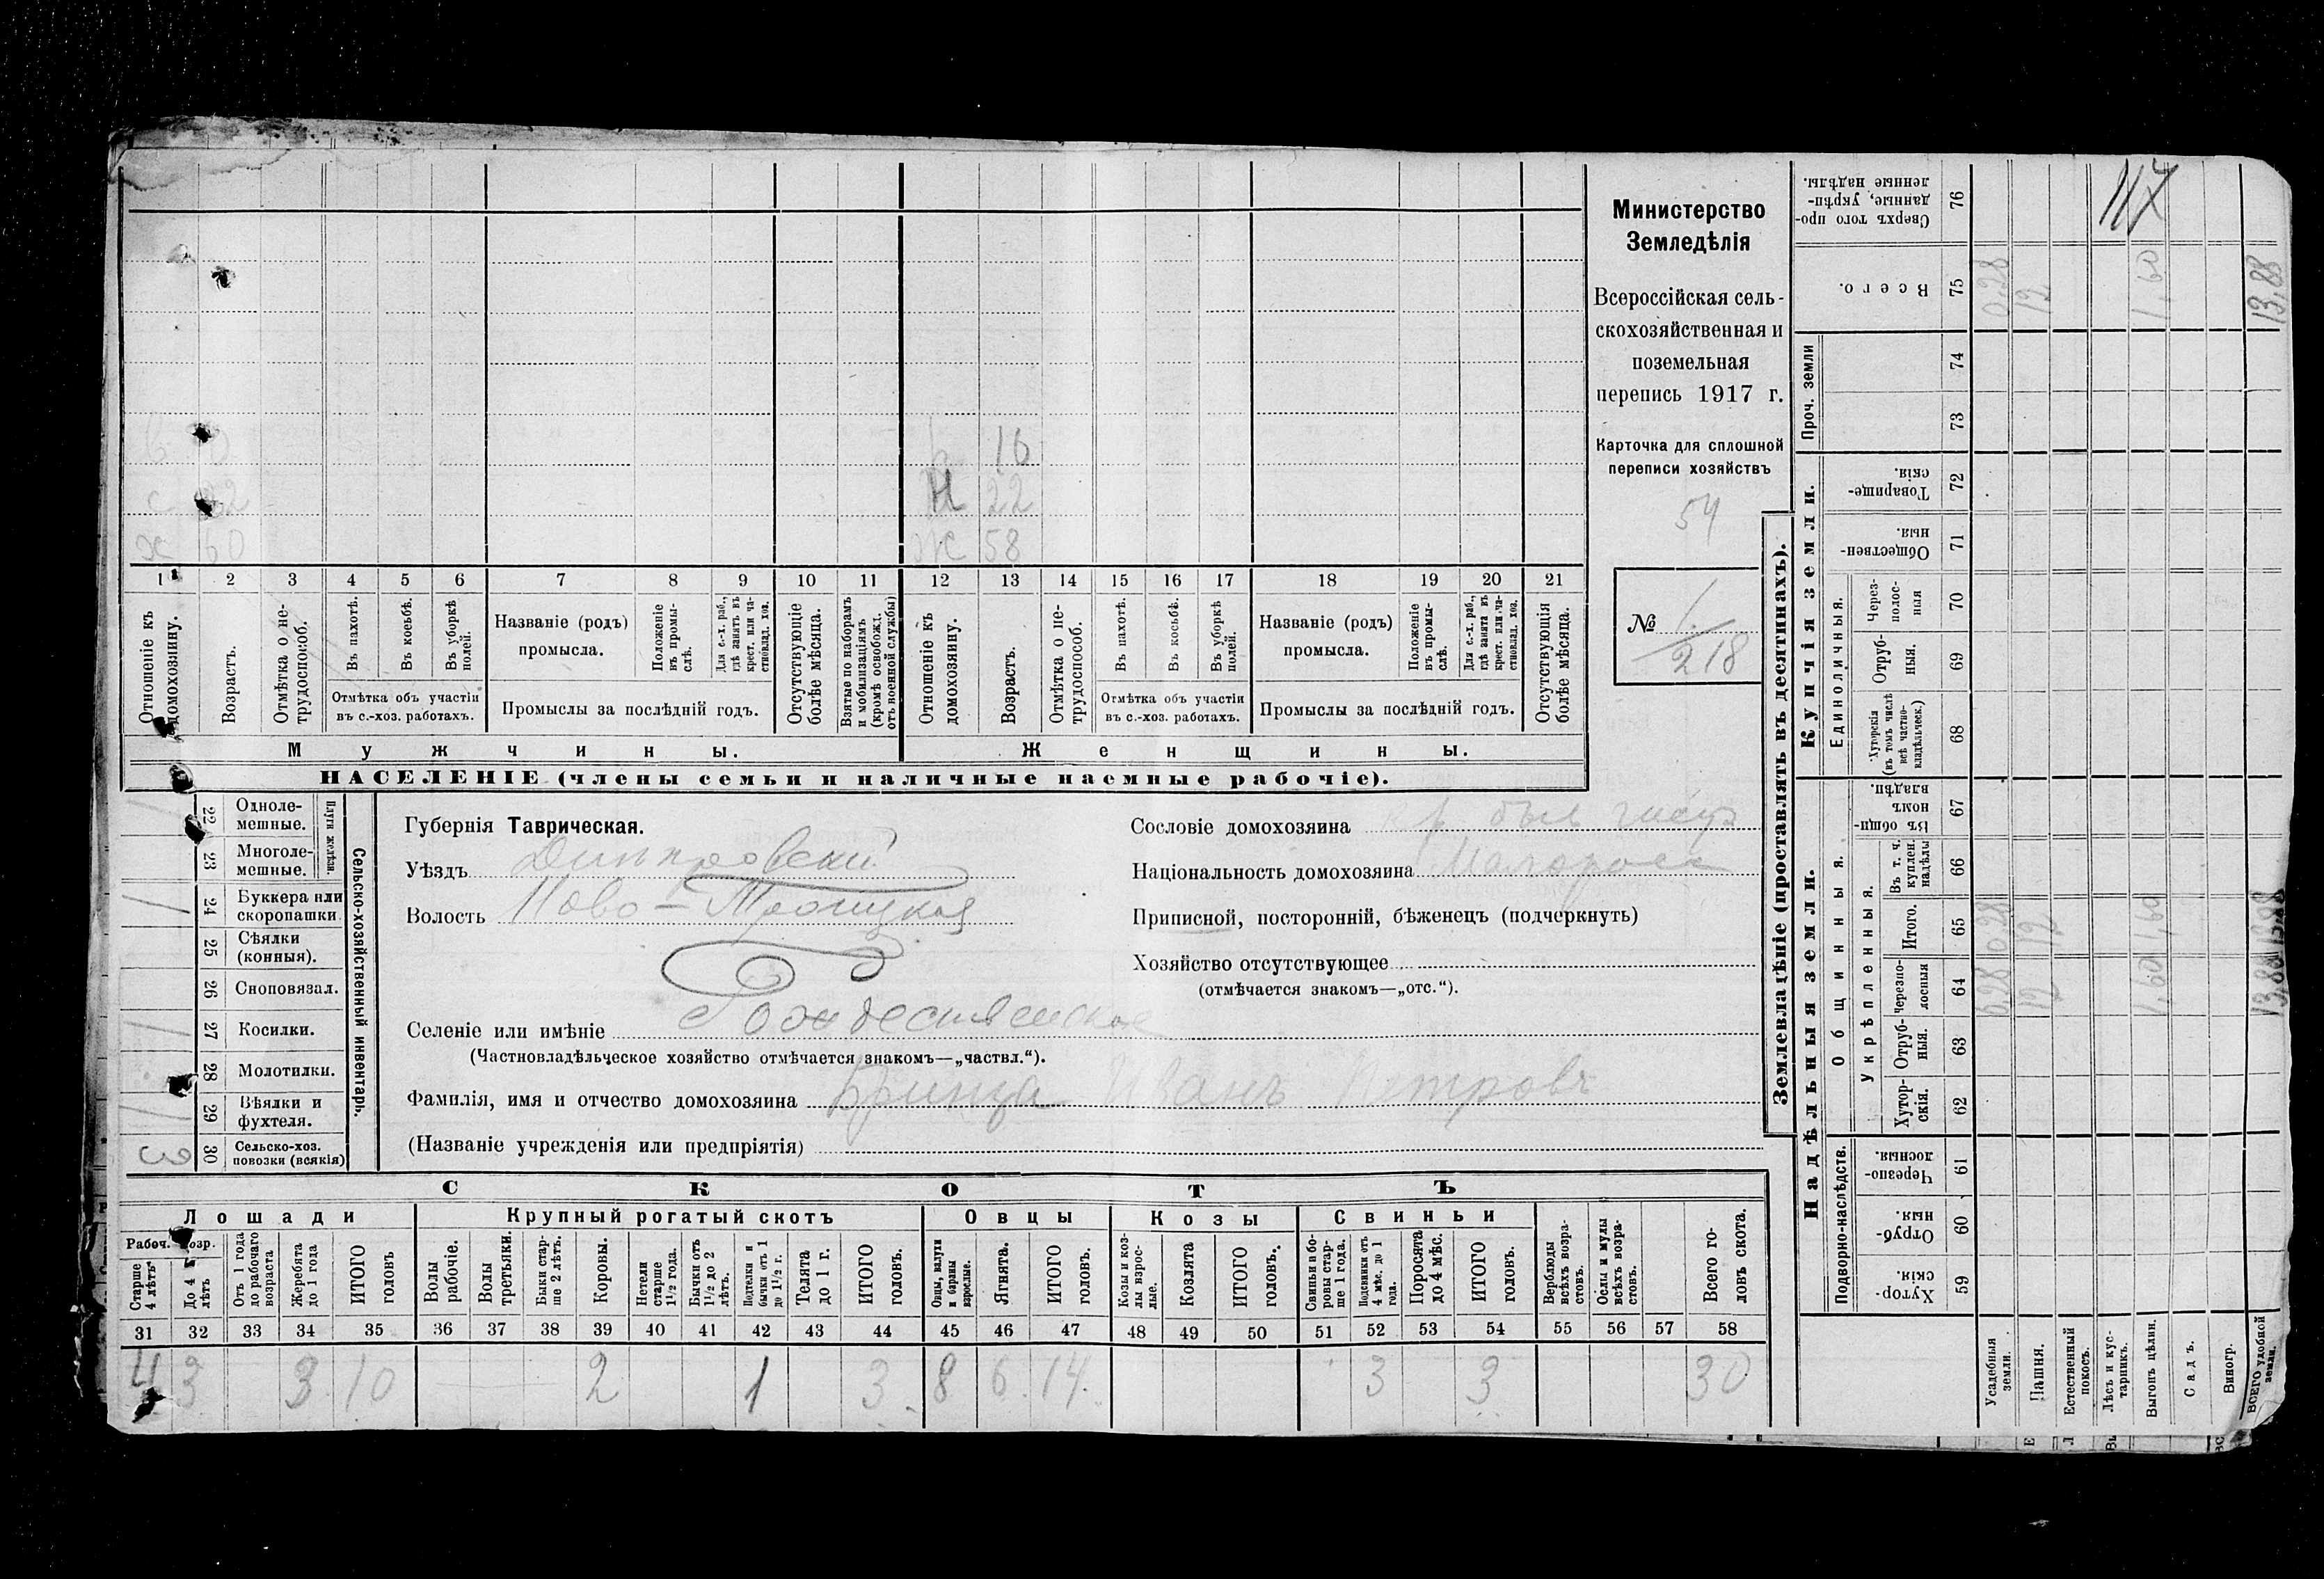 Министерство
Земледѣлія
Всероссійская сель-
скохозяйственная и
поземельная
перепись 1917 г.
Карточка для сплошной
переписи хозяйствъ
54
№ 1
218
16
с 32
Н 22
х 60
Ж 58
1 2 3 4 5 6 7 8 9 10 11 12 13 14 15 16 17 18 19 20 21
Отношеніе къ домохозяину.
Возрастъ.
Отмѣтка о не-трудоспособ.
Въ пахотѣ.
Въ косьбѣ.
Въ уборкѣ полей.
Отмѣтка объ участіи
въ с.-хоз. работахъ.
Названіе (родъ)
промысла.
Положеніе въ промы-слѣ.
Для с.-х. раб., гдѣ занятъ въ крест. или ча-стновлад. хоз.
Промыслы за послѣдній годъ.
Отсутствующіе болѣе мѣсяца.
Взятые по наборамъ и мобилизаціямъ (кромѣ освобожд. отъ военной службы)
Отношеніе къ домохозяину.
Возрастъ.
Отмѣтка о не-трудоспособ.
Въ пахотѣ.
Въ косьбѣ.
Въ уборкѣ полей.
Отмѣтка объ участіи
въ с.-хоз. работахъ.
Названіе (родъ)
промысла.
Положеніе въ промы-слѣ.
Для с.-х. раб., гдѣ занята въ крест. или ча-стновлад. хоз.
Промыслы за послѣдній годъ.
Отсутствующія болѣе мѣсяца.
Мужчины.
Женщины.
НАСЕЛЕНІЕ (члены семьи и наличные наемные рабочіе).
Сельско-хозяйственный инвентарь.
Плуги желѣзн.
22 Одноле-мешные.
23 Многоле-мешные.
24 Буккера или скоропашки
25 Сѣялки (конныя).
26 Сноповязал.
27 Косилки.
28 Молотилки.
29 Вѣялки и фухтеля.
30 Сельско-хоз. повозки (всякія)
3
Губернія Таврическая.
Уѣздъ Днѣпровскій
Волость Ново-Троицкая
Селеніе или имѣніе Рождественское
(Частновладѣльческое хозяйство отмѣчается знакомъ—„частвл.“).
Фамилія, имя и отчество домохозяина Бринза Иванъ Петровъ
(Названіе учрежденія или предпріятія)
Сословіе домохозяина кр
Національность домохозяина Малоросс
Приписной, посторонній, бѣженецъ (подчеркнуть)
Хозяйство отсутствующее
(отмѣчается знакомъ—„отс.“).
СКОТЪ
Лошади
Крупный рогатый скотъ
Овцы
Козы
Свиньи
Рабоч. возр.
Старше 4 лѣтъ
До 4 лѣтъ
Отъ 1 года до рабочаго возраста
Жеребята до 1 года
ИТОГО головъ
Волы рабочіе.
Волы третьяки.
Быки стар-ше 2 лѣтъ.
Коровы.
Нетели старше 1½ года.
Бычки отъ 1½ до 2 лѣтъ.
Подтелки и бычки отъ 1 до 1½ г.
Телята до 1 г.
ИТОГО головъ.
Овцы, валухи и бараны взрослые.
Ягнята.
ИТОГО головъ.
Козы и коз-лы взрос-лые.
Козлята
ИТОГО головъ.
Свиньи и бо-ровы стар-ше 1 года.
Подсвинки отъ 4 мѣс. до 1 года.
Поросята до 4 мѣс.
ИТОГО головъ.
Верблюды всѣхъ возра-стовъ.
Ослы и мулы всѣхъ возра-стовъ.
Всего го-ловъ скота.
31 32 33 34 35 36 37 38 39 40 41 42 43 44 45 46 47 48 49 50 51 52 53 54 55 56 57 58
4 3 3 10 2 1 3 8 6 14 3 3 30
Землевладѣніе (проставлять въ десятинахъ).
Надѣльныя земли.
Купчія земли.
Проч. земли
Подворно-наслѣдств.
Общинныя.
Укрѣпленныя.
Единоличныя.
Хутор-скія. 59
Отруб-ныя. 60
Черезпо-лосныя. 61
Хутор-скія. 62
Отруб-ныя. 63
Черезпо-лосныя 64
Итого. 65
Въ т. ч. куплен. надѣлы 66
Въ общи-номъ владѣн. 67
Хуторскія (въ томъ числѣ всѣ частно-владѣльческ.) 68
Отруб-ныя. 69
Через-полос-ныя 70
Обществен-ныя. 71
Товарище-скія. 72
73
74
Всего. 75
Сверхъ того про-данные, укрѣп-ленные надѣлы. 76
Усадебныя земли. 0,28 0,28 0,28
Пашня. 12 12 12
Естественный покосъ.
Лѣсъ и кус-тарникъ.
Выгонъ цѣлин. 1,60 1,60 1,60
Садъ.
Виногр.
ВСЕГО удобной земли. 13,88 13,88 13,88